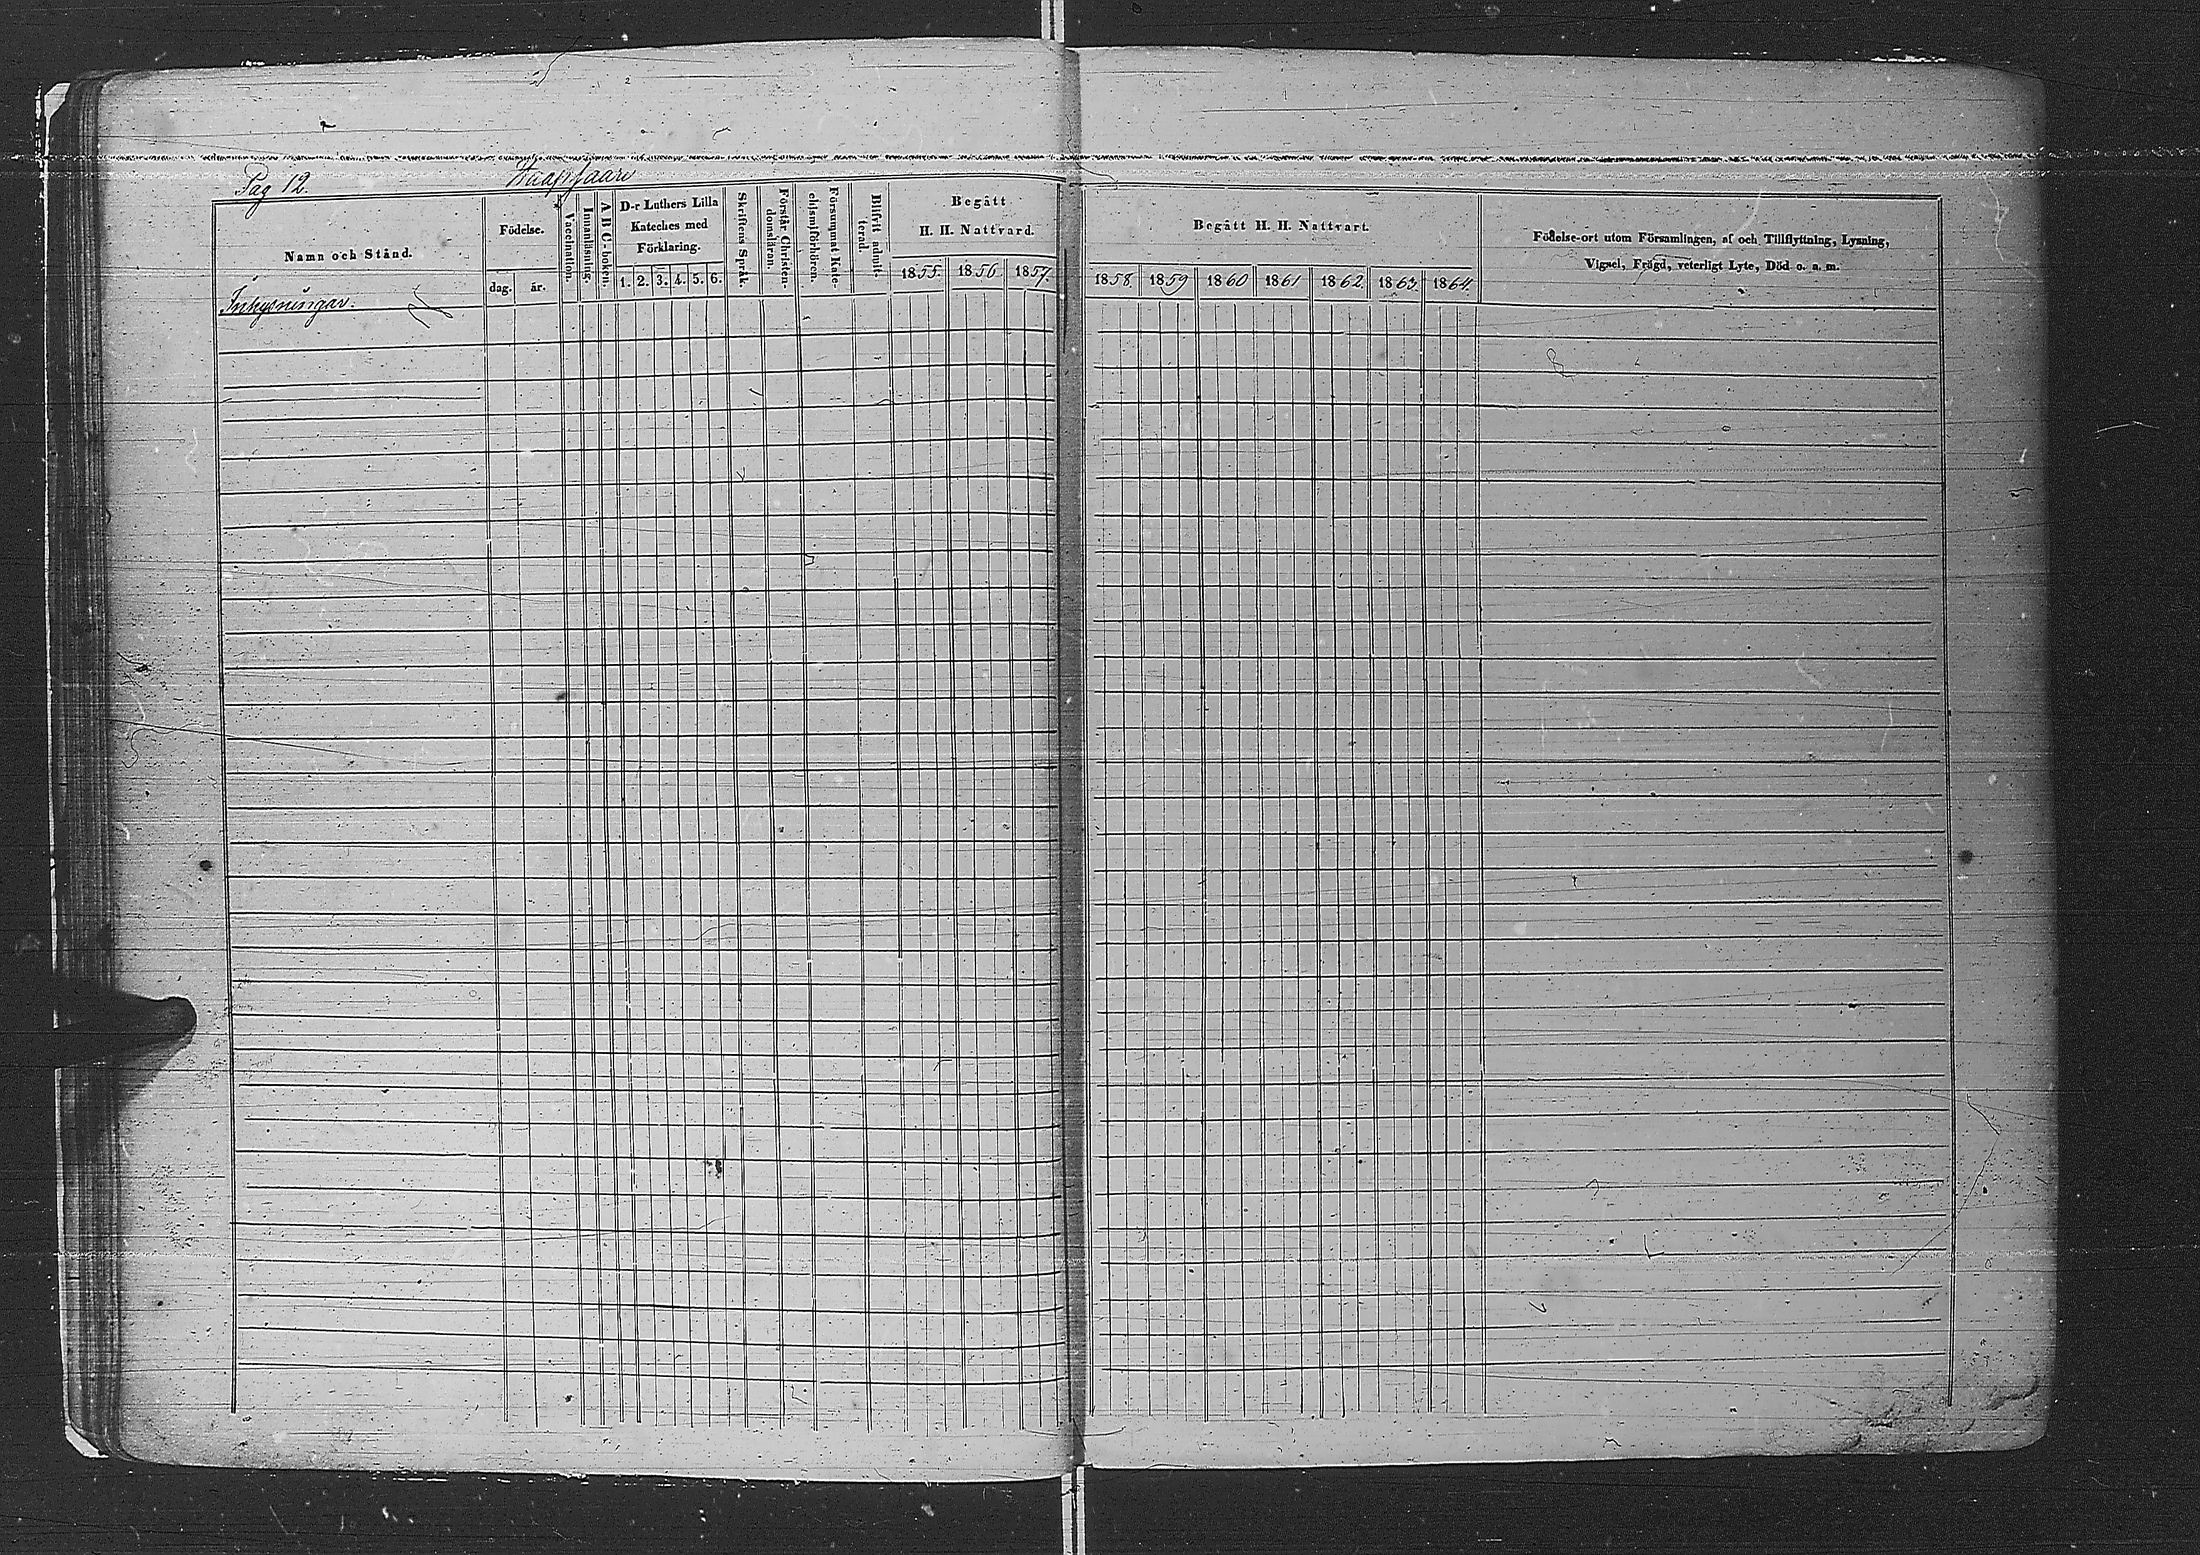 Pag 12.
Namn och Stånd.
Födelse.
dag.
år.
Vaccination.
Innanläsning.
A B C-boken.
D-r Luthers Lilla
Kateches med
Förklaring.
1. 2. 3. 4. 5. 6.
Skriftens Språk.
Förstår Christen-
domsläran.
Försummat Kate-
chismiförhören.
Blifvit admit-
terad.
Begått
H. H. Nattvard.
1855. 1856. 1857.
Begått H. H. Nattvart.
1858. 1859 1860 1861 1862. 1863. 1864.
Födelse-ort utom Församlingen, af och Tillflyttning, Lysning,
Vigsel, Frägd, veterligt Lyte, Död o. s. m.
Inhysningar.